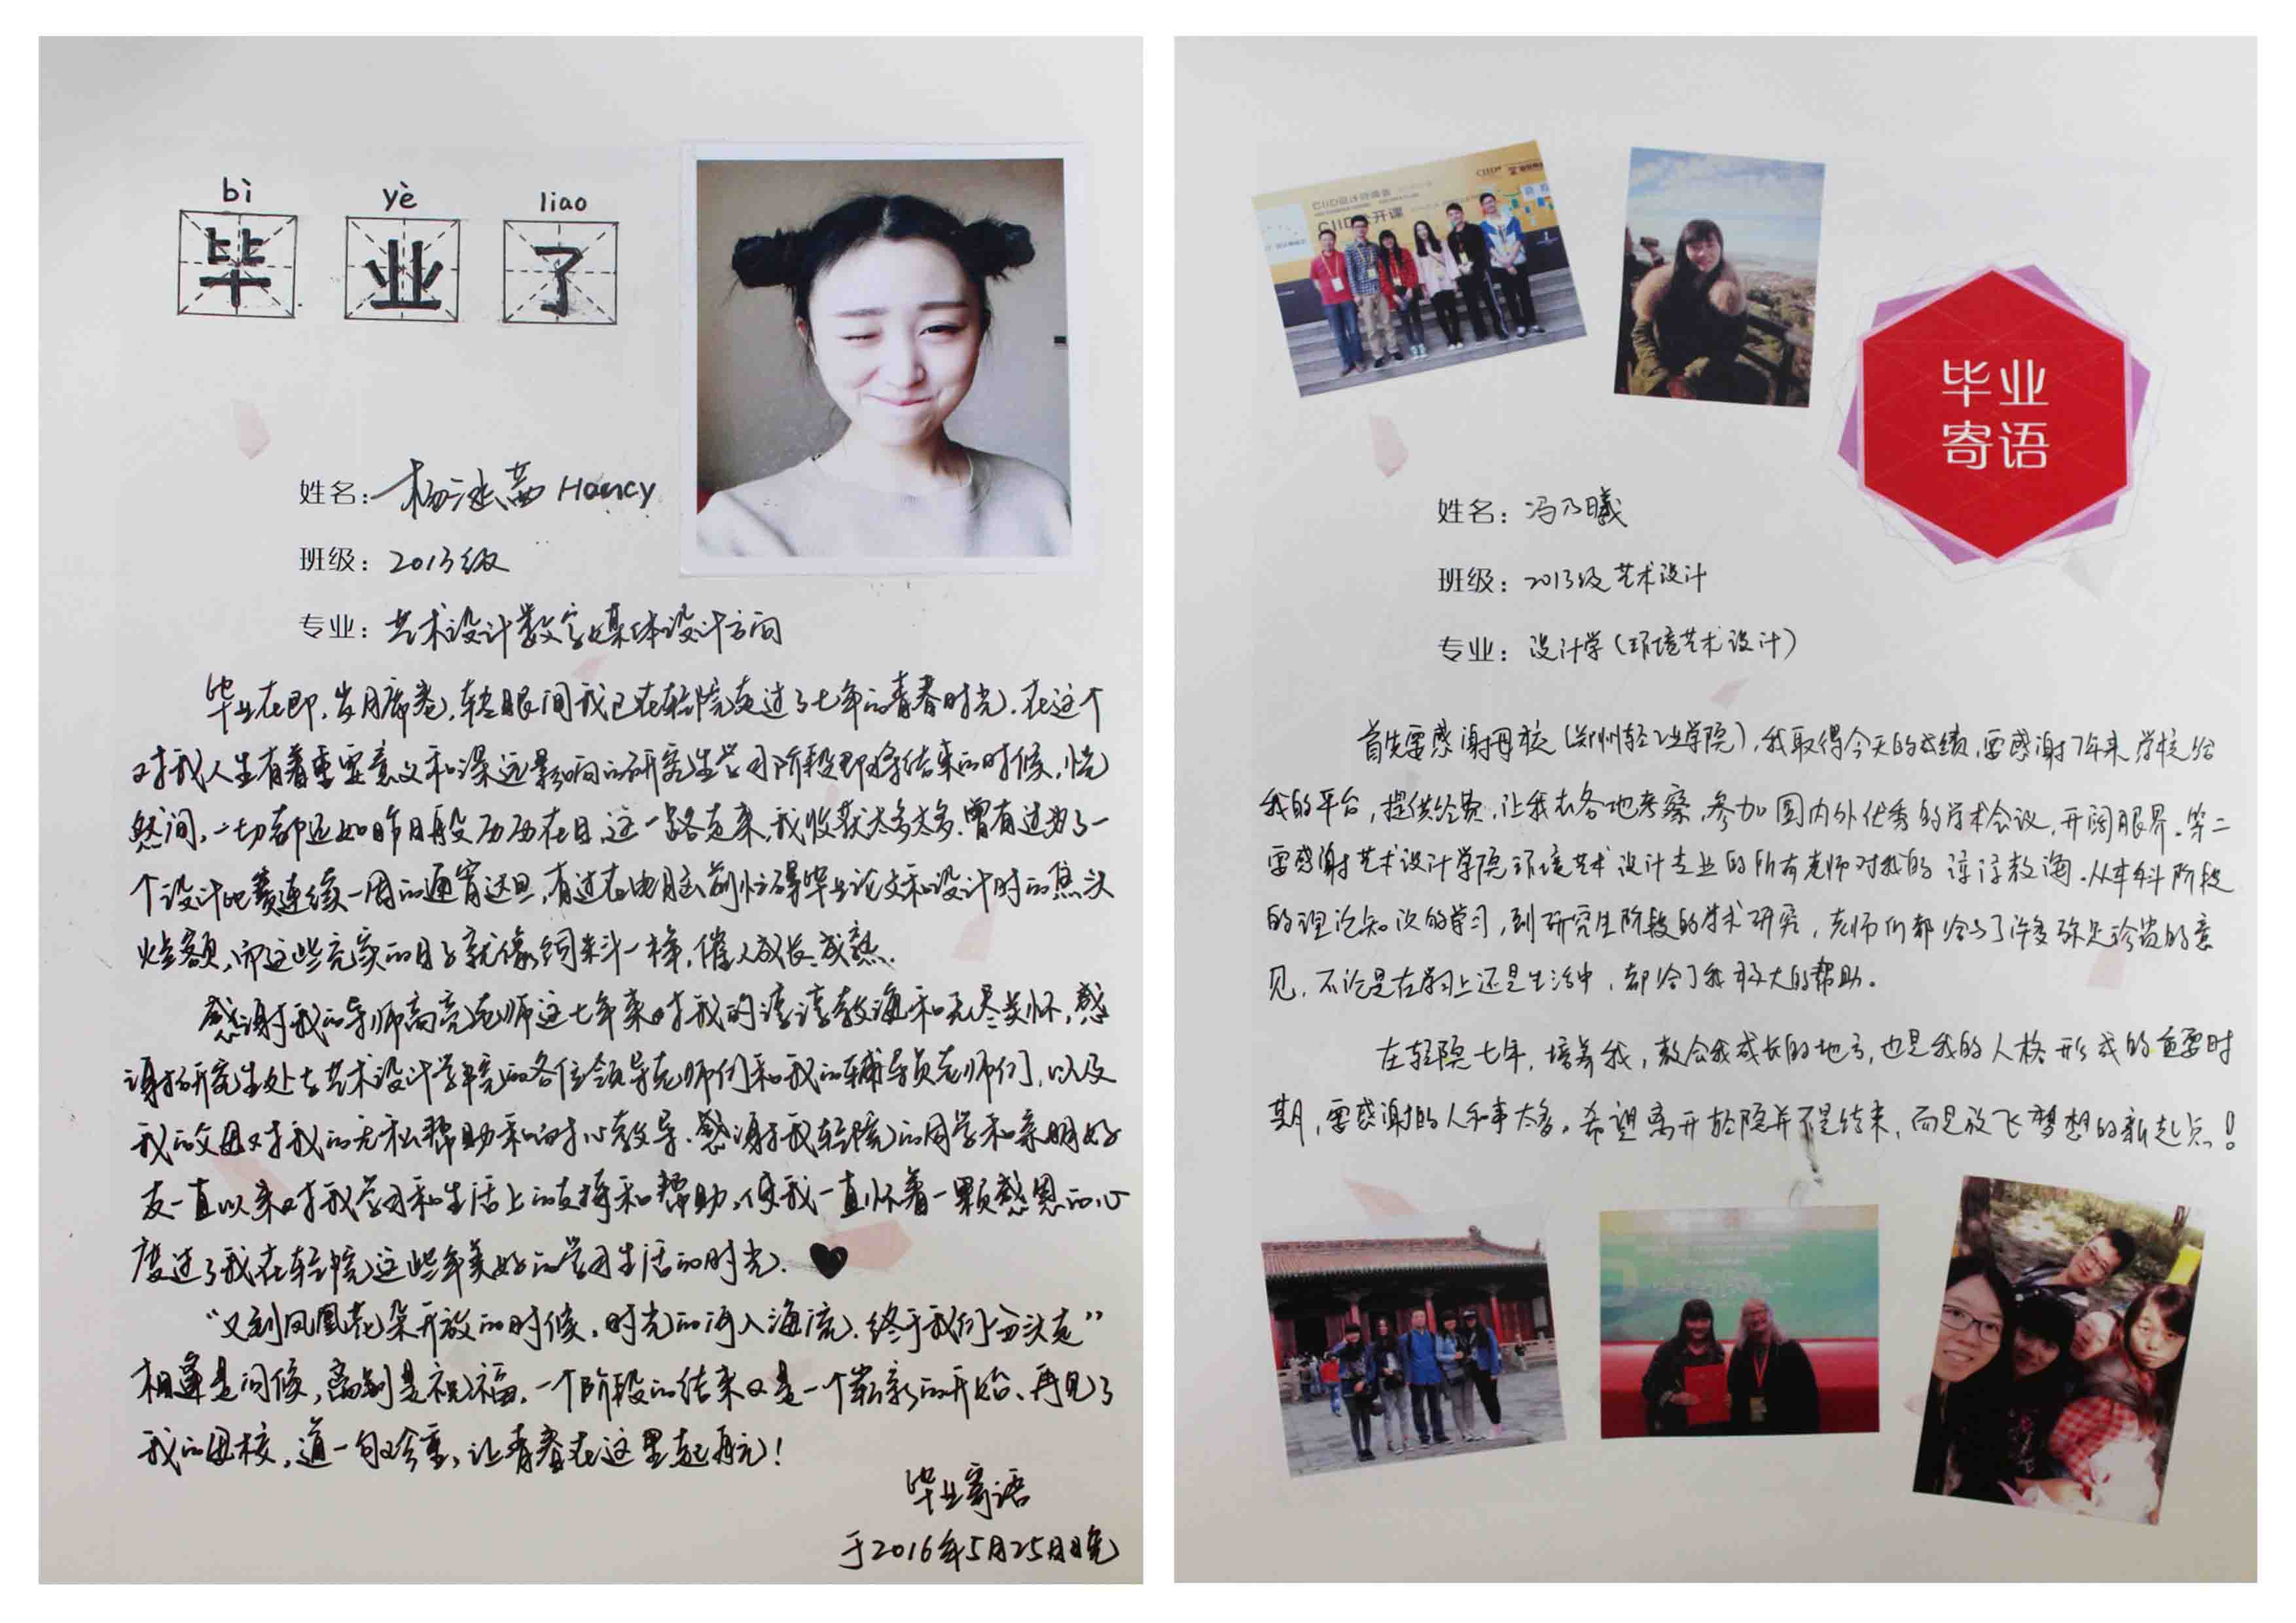 bì yè liao
毕 业 了
姓名：杨 茜 Hancy
班级：2013级
专业：艺术设计数字媒体设计方向
毕业在即，岁月席卷，转眼间我已在轻院走过了七年的青春时光，在这个
对我人生有着重要意义和深远影响的研究生学习阶段即将结束的时候，恍
然间，一切都还如昨日般历历在目，这一路走来，我收获太多太多，曾有过为了一
个设计比赛连续一周的通宵达旦，有过在电脑前忙碌毕业论文和设计时的焦头
烂额，而这些充实的日子就像饲料一样，催人成长、成熟.
感谢我的导师高亮老师这七年来对我的谆谆教诲和无尽关怀，感
谢研究生处与艺术设计学院的各位领导老师们和我的辅导员老师们，以及
我的父母对我的无私帮助和耐心教导.感谢我轻院的同学和亲朋好
友一直以来对我学习和生活上的支持和帮助，使我一直怀着一颗感恩的心
度过了我在轻院这些年美好的学习生活的时光.
“又到凤凰花朵开放的时候，时光的河入海流，终于我们分头走”
相逢是问候，离别是祝福，一个阶段的结束又是一个崭新的开始、再见了
我的母校，道一句珍重，让青春在这里起航！
毕业寄语
于2016年5月25日晚
CIID设计师峰会
CIID公开课
毕业
寄语
姓名：冯乃曦
班级：2013级 艺术设计
专业：设计学（环境艺术设计）
首先要感谢母校（郑州轻工业学院），我取得今天的成绩，要感谢7年来学校给
我的平台，提供经费，让我去各地考察，参加国内外优秀的学术会议，开阔眼界。第二
要感谢艺术设计学院环境艺术设计专业的所有老师对我的谆谆教诲.从本科阶段
的理论知识的学习，到研究生阶段的学术研究，老师们都给予了许多弥足珍贵的意
见，不论是在学习上还是生活中，都给了我极大的帮助。
在轻院七年，培养我，教会我成长的地方，也是我的人格形成的重要时
期，要感谢的人和事太多。希望离开轻院并不是结束，而是放飞梦想的新起点！